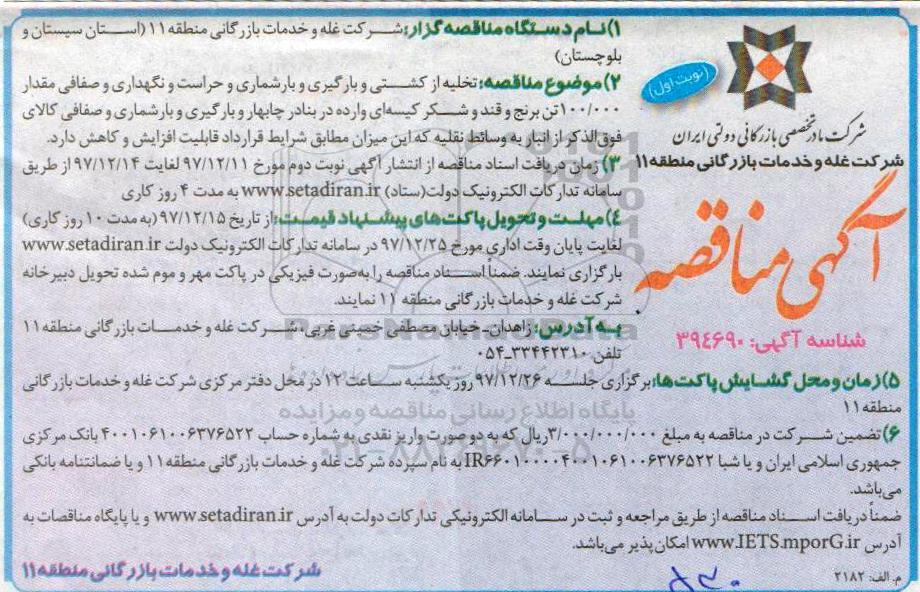 ۱)نام دستگاه مناقصه گزار: شرکت غله و خدمات بازرگانی منطقه ۱۱ (استان سیستان و
بلوچستان)
۲)موضوع مناقصه: تخلیه از کشتی و بارگیری و بارشماری و حراست و نگهداری و صفافی مقدار
۱۰۰/۰۰۰ تن برنج و قند و شکر کیسه‌ای وارده در بنادر چابهار و بارگیری و بارشماری و صفافی کالای
فوق الذکر از انبار به وسائط نقلیه که این میزان مطابق شرایط قرارداد قابلیت افزایش و کاهش دارد.
۳) زمان دریافت اسناد مناقصه از انتشار آگهی نوبت دوم مورخ ۹۷/۱۲/۱۱ لغایت ۹۷/۱۲/۱۴ از طریق
سامانه تدارکات الکترونیک دولت(ستاد) www.setadiran.ir به مدت ۴ روز کاری
۴) مهلت و تحویل پاکت‌های پیشنهاد قیمت: از تاریخ ۹۷/۱۲/۱۵ (به مدت ۱۰ روز کاری)
لغایت پایان وقت اداری مورخ ۹۷/۱۲/۲۵ در سامانه تدارکات الکترونیک دولت www.setadiran.ir
بارگزاری نمایند. ضمناً اسناد مناقصه را به‌صورت فیزیکی در پاکت مهر و موم شده تحویل دبیرخانه
شرکت غله و خدمات بازرگانی منطقه ۱۱ نمایند.
به آدرس: زاهدان- خیابان مصطفی خمینی غربی، شرکت غله و خدمات بازرگانی منطقه ۱۱
تلفن ۳۳۴۴۲۳۱۰-۰۵۴
۵)زمان و محل گشایش پاکت‌ها: برگزاری جلسه ۹۷/۱۲/۲۶ روز یکشنبه ساعت ۱۲ در محل دفتر مرکزی شرکت غله و خدمات بازرگانی
منطقه ۱۱
۶) تضمین شرکت در مناقصه به مبلغ ۳/۰۰۰/۰۰۰/۰۰۰ ریال که به دو صورت واریز نقدی به شماره حساب ۴۰۰۱۰۶۱۰۰۶۳۷۶۵۲۲ بانک مرکزی
جمهوری اسلامی ایران و یا شبا IR۶۶۰۱۰۰۰۰۴۰۰۱۰۶۱۰۰۶۳۷۶۵۲۲ به نام سپرده شرکت غله و خدمات بازرگانی منطقه ۱۱ و یا ضمانتنامه بانکی
می‌باشد.
ضمناً دریافت اسناد مناقصه از طریق مراجعه و ثبت در سامانه الکترونیکی تدارکات دولت به آدرس www.setadiran.ir و یا پایگاه مناقصات به
آدرس www.IETS.mporG.ir امکان پذیر می‌باشد.
م. الف: ۲۱۸۲
شرکت غله و خدمات بازرگانی منطقه ۱۱
(نوبت اول)
شرکت مادر تخصصی بازرگانی دولتی ایران
شرکت غله و خدمات بازرگانی منطقه ۱۱
آگهی مناقصه
شناسه آگهی: ۳۹۴۶۹۰
ParsNamadData
پایگاه اطلاع رسانی مناقصه و مزایده